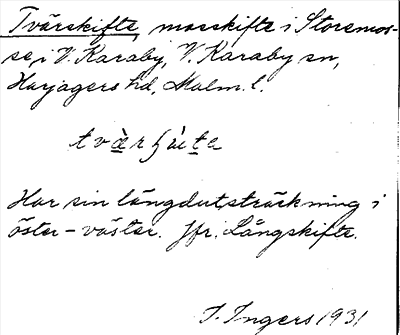 Tvärskifte, mosskifte i Storemos-
se, i V. Karaby, V. Karaby sn,
Harjagers hd, Malm. l.
Har sin längdutsträckning i
öster-väster. Jfr. Långskifte.
I. Ingers 1931